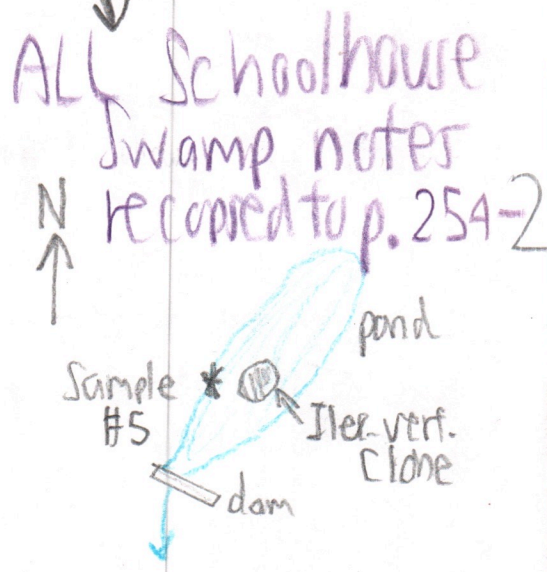 ALL Schoolhouse
Swamp notes
N recopied to p. 254-2
pond
Sample
#5
Ilex vert.
Clone
dam